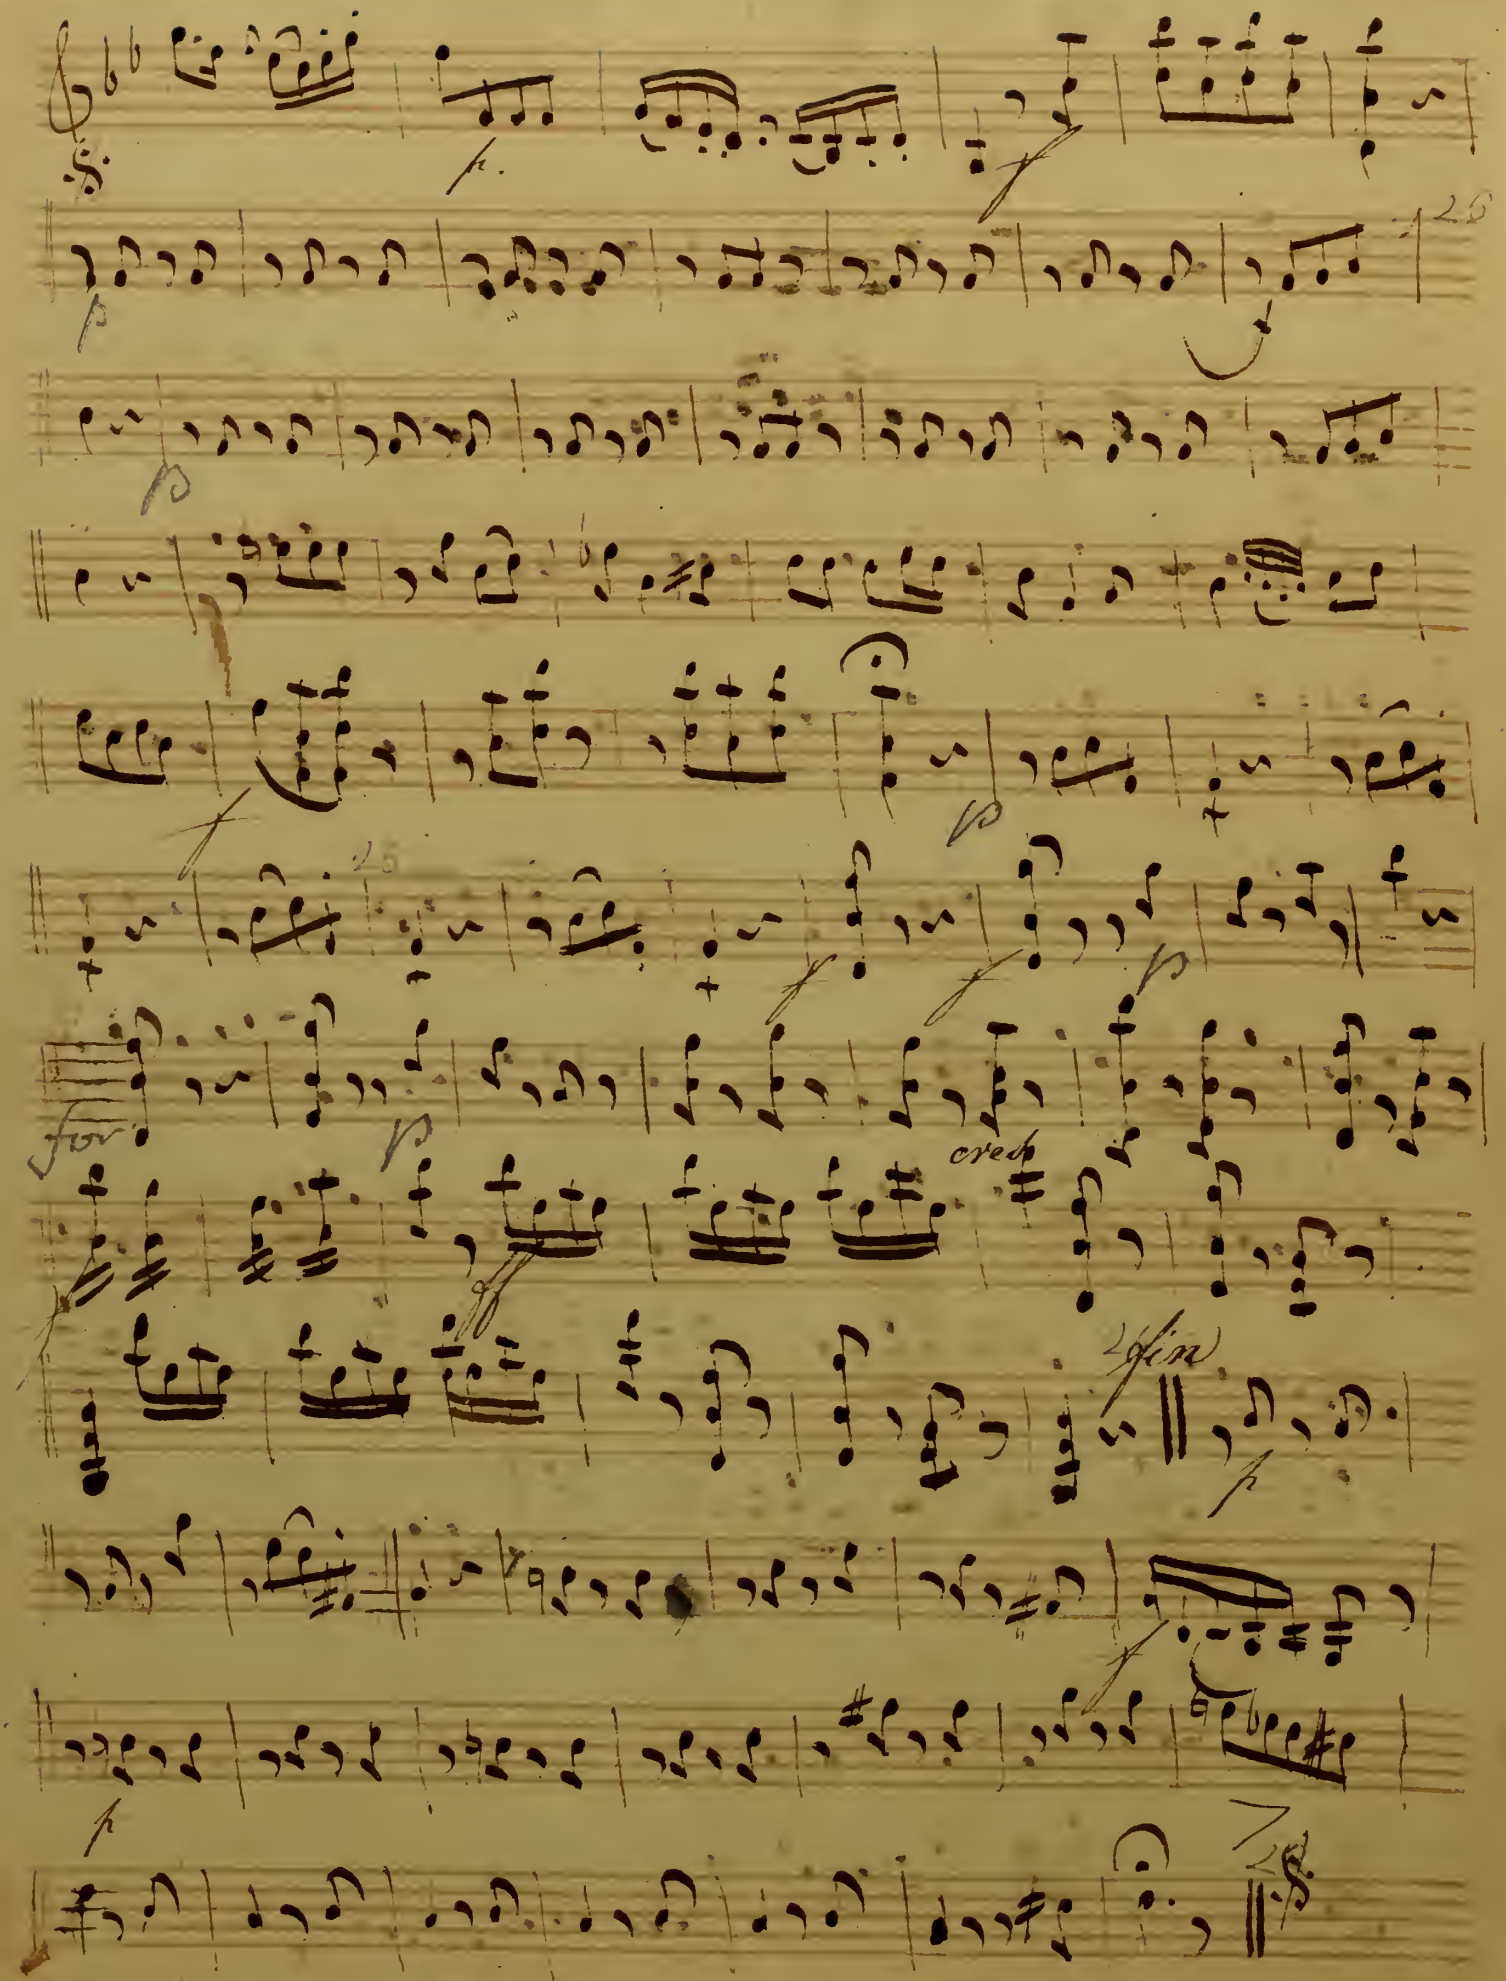 p.
f
26
p
f
p
f
p
26
f
f
p
for
p
cresc
f
ff
fin
p
f
p